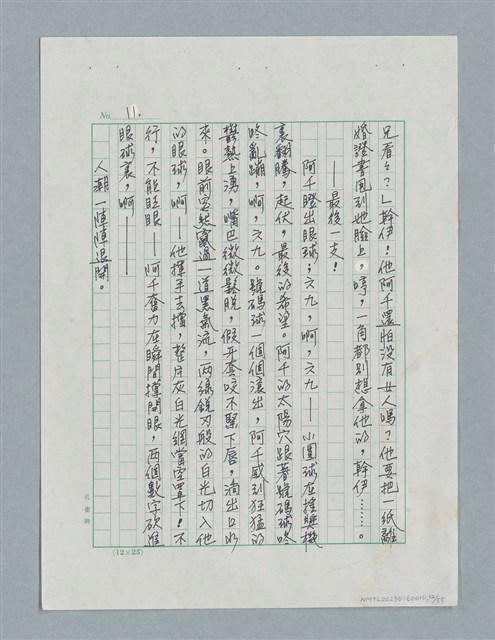 No. 11.
兄看々？」幹伊！他阿千還怕沒有女人嗎？他要把一紙離
婚證書甩到她臉上，哼，一角都別想拿他的，幹伊……。
——最後一支！
阿千瞪出眼球；六九，啊，六九——小圓球在搖獎機
裏翻騰，起伏，最後的希望。阿千的太陽穴跟著號碼球咚
咚亂蹦，啊，六九。號碼球一個個滾出，阿千感到狂猛的
鬱熱上湧，嘴巴微微鬆脫，假牙套咬不緊下唇，淌出口水
來。眼前忽地竄過一道黑氣流，兩線銳刃般的白光切入他
的眼球，啊——他揮手去擋，整片灰白光網當空罩下！不
行，不能眨眼——阿千奮力在瞬間撐開眼，兩個數字砍進
眼球裏，啊———
人潮一陣陣退開。
(12×25)